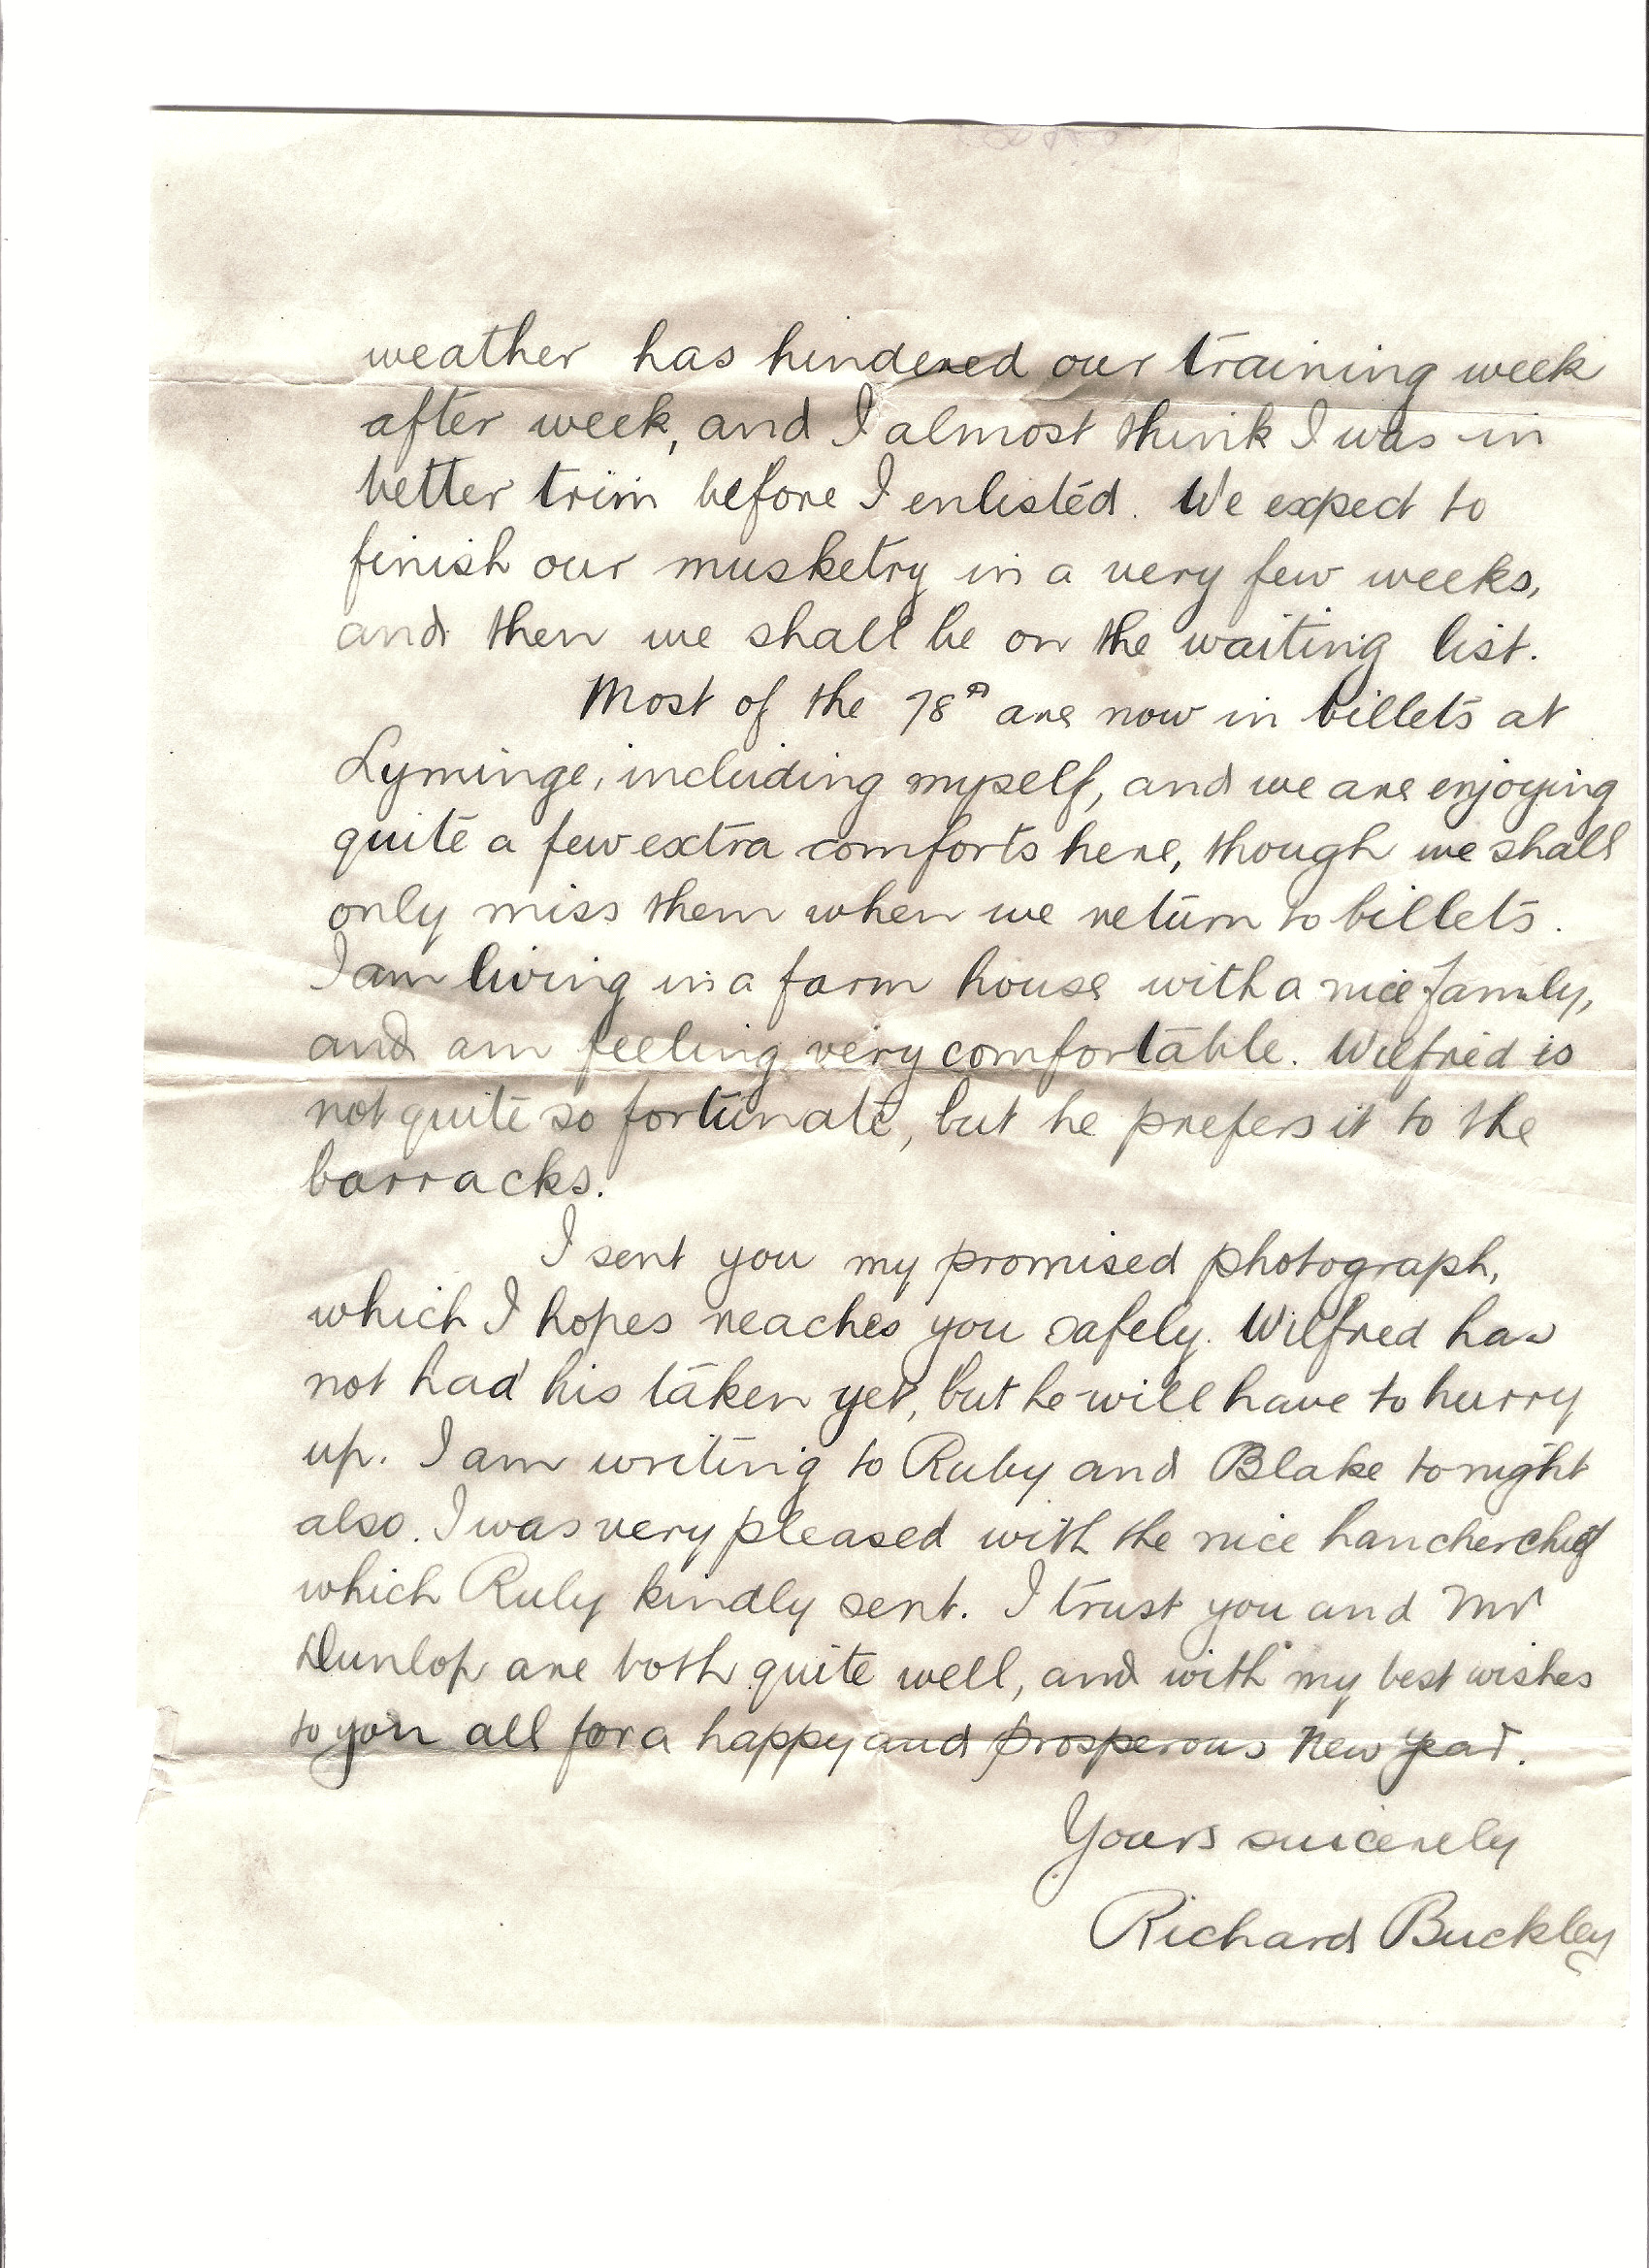 weather has hindered our training week
after week, and I almost think I was in
better trim before I enlisted. We expect to
finish our musketry in a very few weeks,
and then we shall be on the waiting list.
Most of the 78th are now in billets at
Lyminge, including myself, and we are enjoying
quite a few extra comforts here, though we shall
only miss them when we return to billets.
I am living in a farm house with a nice family,
and am feeling very comfortable. Wilfred is
not quite so fortunate, but he prefers it to the
barracks.
I sent you my promised photograph,
which I hopes reaches you safely. Wilfred has
not had his taken yet, but he will have to hurry
up. I am writing to Ruby and Blake tonight
also. I was very pleased with the nice hancherchief
which Ruby kindly sent. I trust you and Mr
Dunlop are both quite well, and with my best wishes
to you all for a happy and prosperous New Year.
Yours sincerely
Richard Buckley